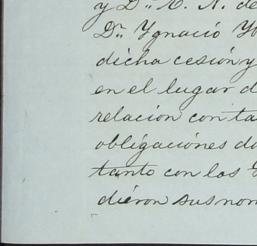 y D.ⁿ E. N. de
D.ⁿ Ygnacio
dicha cesión y
en el lugar d
relacion con ta
obligaciónes do
tanto con los
diéron sus nom